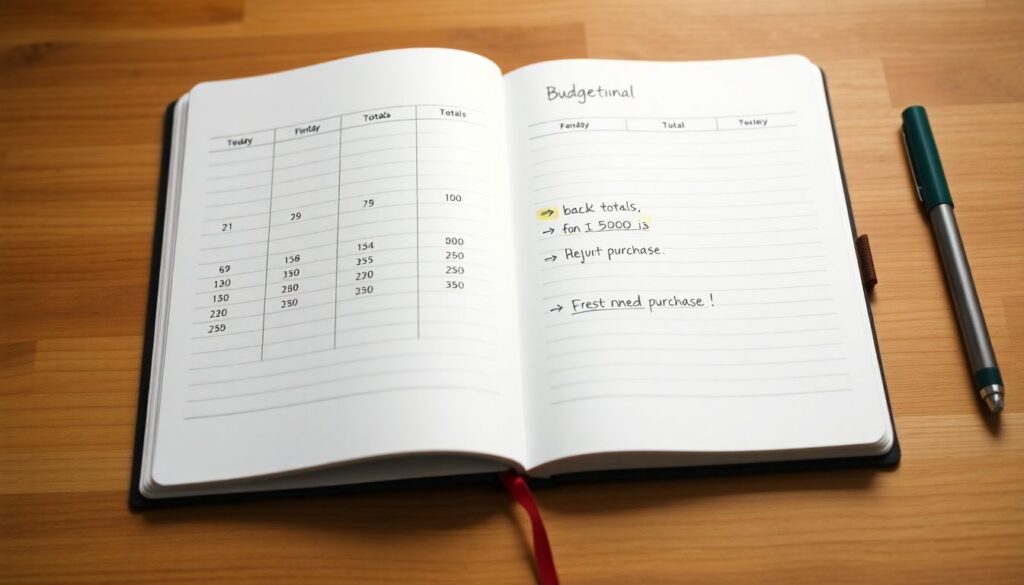 Totals
Totals
Fordy
Teddy
100
79
29
21
154 300
69 158 355 250
130 350 220 250
130 280 250 350
220 250
250
Budgetinal
Farday Total Today
⇒ back totals,
→ fon I 5000 is
→ Rejurt purchase.
→ Frest nned purchase!